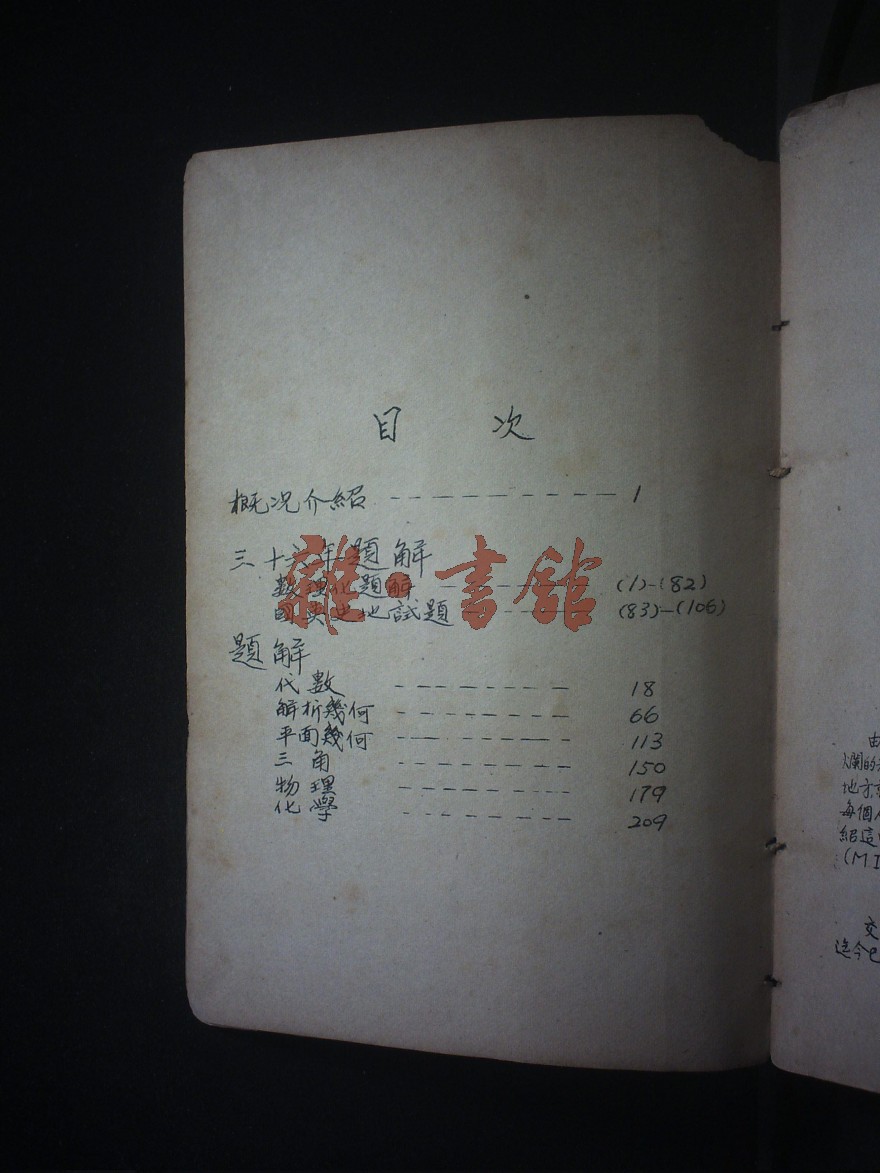 目 次
概况介紹 ---------- 1
三十六年題解
數理化題解 ------ (1)-(82)
國英史地試題 ---- (83)-(106)
題解
代數 -------- 18
解析幾何 -------- 66
平面幾何 -------- 113
三角 -------- 150
物理 -------- 179
化學 -------- 209
雜·書館
由
爛的
地方
每個
紹這
(MI
交
迄今已